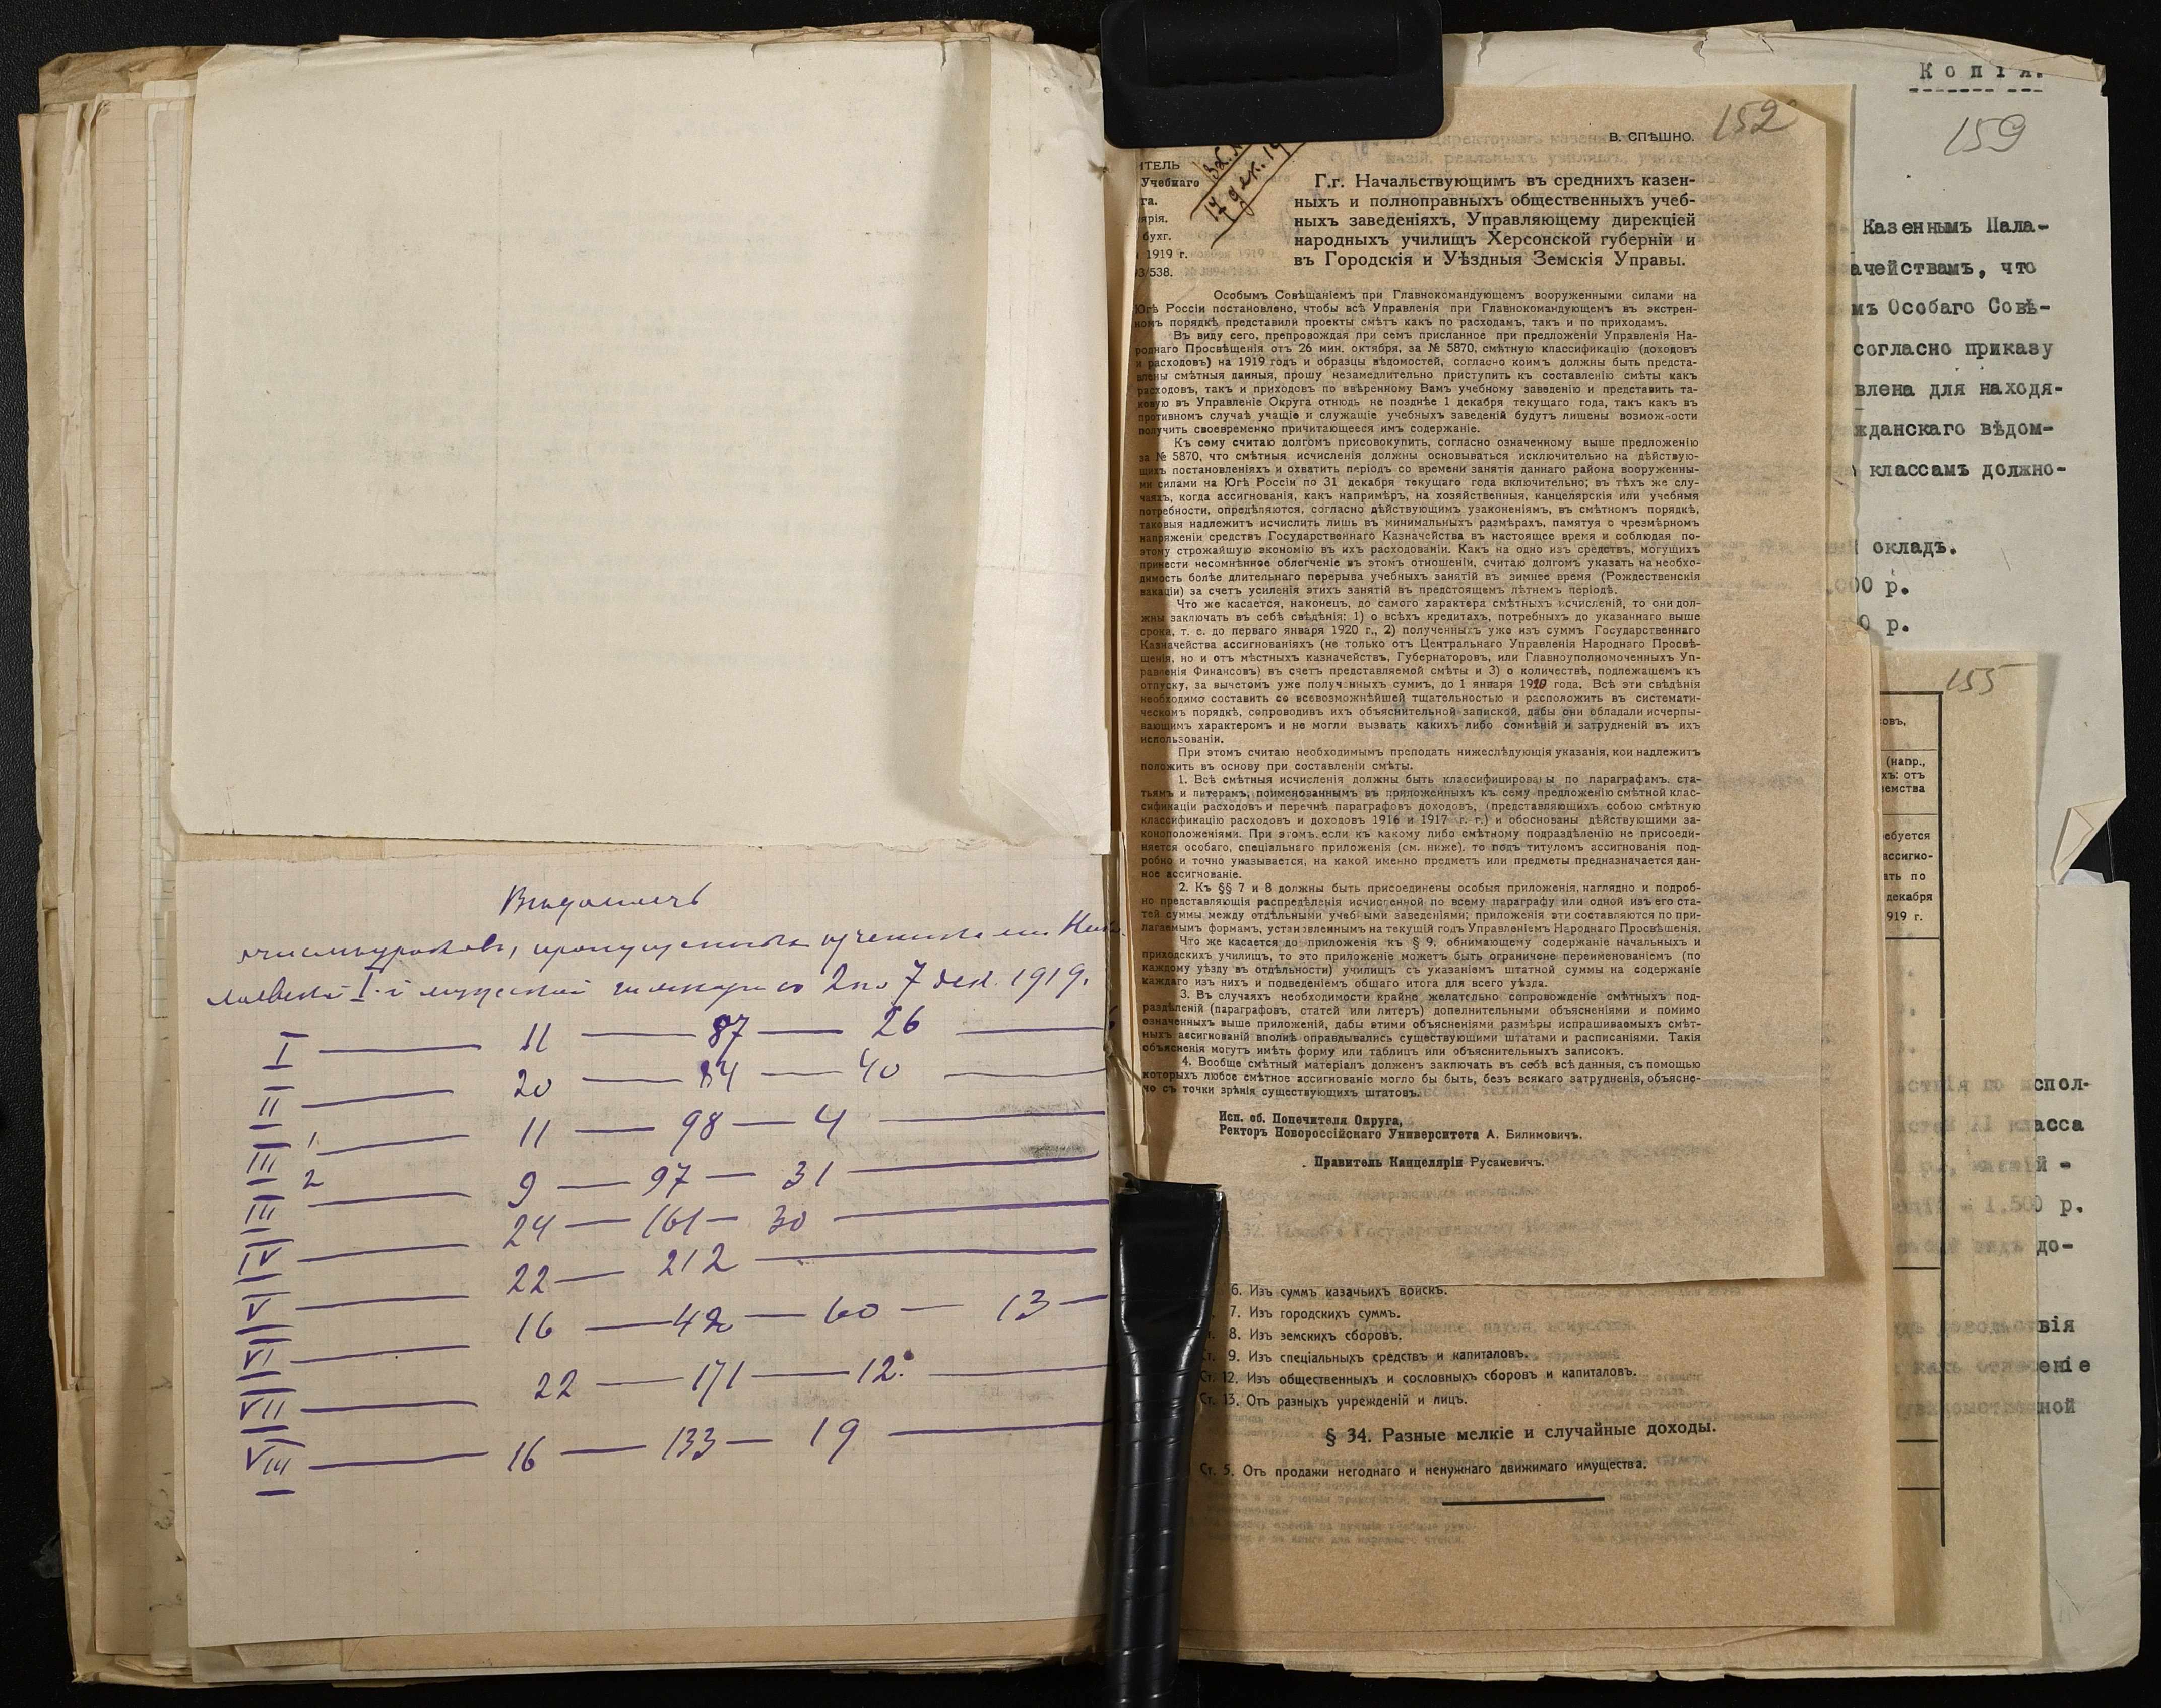 Вѣдомость
числа уроковъ, пропущенныхъ учениками Нико-
лаевской I-й мужской гимназіи со 2 по 7 дек. 1919.
I — 11 — 87 — 26 —
II — 20 — 84 — 40 —
III 1 — 11 — 98 — 4 —
III 2 — 9 — 97 — 31 —
IV — 24 — 161 — 30 —
V — 22 — 212 —
VI — 16 — 42 — 60 — 13 —
VII — 22 — 171 — 12. —
VIII — 16 — 133 — 19 —
152
В. СПѢШНО.
ИТЕЛЬ
Учебнаго
га.
ярія.
бухг.
1919 г.
3/538.
17 дек. 19
Г.г. Начальствующимъ въ среднихъ казен-
ныхъ и полноправныхъ общественныхъ учеб-
ныхъ заведеніяхъ, Управляющему дирекціей
народныхъ училищъ Херсонской губерніи и
въ Городскія и Уѣздныя Земскія Управы.
Особымъ Совѣщаніемъ при Главнокомандующемъ вооруженными силами на
Югѣ Россіи постановлено, чтобы всѣ Управленія при Главнокомандующемъ въ экстрен-
номъ порядкѣ представили проекты смѣтъ какъ по расходамъ, такъ и по приходамъ.
Въ виду сего, препровождая при семъ присланное при предложеніи Управленія На-
роднаго Просвѣщенія отъ 26 мин. октября, за № 5870, смѣтную классификацію (доходовъ
и расходовъ) на 1919 годъ и образцы вѣдомостей, согласно коимъ должны быть предста-
влены смѣтныя данныя, прошу незамедлительно приступить къ составленію смѣты какъ
расходовъ, такъ и приходовъ по ввѣренному Вамъ учебному заведенію и представить та-
ковую въ Управленіе Округа отнюдь не позднѣе 1 декабря текущаго года, такъ какъ въ
противномъ случаѣ учащіе и служащіе учебныхъ заведеній будутъ лишены возможности
получить своевременно причитающееся имъ содержаніе.
Къ сему считаю долгомъ присовокупить, согласно означенному выше предложенію
за № 5870, что смѣтныя исчисленія должны основываться исключительно на дѣйствую-
щихъ постановленіяхъ и охватить періодъ со времени занятія даннаго района вооруженны-
ми силами на Югѣ Россіи по 31 декабря текущаго года включительно; въ тѣхъ же слу-
чаяхъ, когда ассигнованія, какъ напримѣръ, на хозяйственныя, канцелярскія или учебныя
потребности, опредѣляются, согласно дѣйствующимъ узаконеніямъ, въ смѣтномъ порядкѣ,
таковыя надлежитъ исчислить лишь въ минимальныхъ размѣрахъ, памятуя о чрезмѣрномъ
напряженіи средствъ Государственнаго Казначейства въ настоящее время и соблюдая по-
этому строжайшую экономію въ ихъ расходованіи. Какъ на одно изъ средствъ, могущихъ
принести несомнѣнное облегченіе въ этомъ отношеніи, считаю долгомъ указать на необхо-
димость болѣе длительнаго перерыва учебныхъ занятій въ зимнее время (Рождественскія
вакаціи) за счетъ усиленія этихъ занятій въ предстоящемъ лѣтнемъ періодѣ.
Что же касается, наконецъ, до самого характера смѣтныхъ исчисленій, то они дол-
жны заключать въ себѣ свѣдѣнія: 1) о всѣхъ кредитахъ, потребныхъ до указаннаго выше
срока, т. е. до перваго января 1920 г., 2) полученныхъ уже изъ суммъ Государственнаго
Казначейства ассигнованіяхъ (не только отъ Центральнаго Управленія Народнаго Просвѣ-
щенія, но и отъ мѣстныхъ казначействъ, Губернаторовъ, или Главноуполномоченныхъ Уп-
равленія Финансовъ) въ счетъ представляемой смѣты и 3) о количествѣ, подлежащемъ къ
отпуску, за вычетомъ уже полученныхъ суммъ, до 1 января 1920 года. Всѣ эти свѣдѣнія
необходимо составить со всевозможнѣйшей тщательностью и расположить въ системати-
ческомъ порядкѣ, сопроводивъ ихъ объяснительной запиской, дабы они обладали исчерпы-
вающимъ характеромъ и не могли вызвать какихъ либо сомнѣній и затрудненій въ ихъ
использованіи.
При этомъ считаю необходимымъ преподать нижеслѣдующія указанія, кои надлежитъ
положить въ основу при составленіи смѣты.
1. Всѣ смѣтныя исчисленія должны быть классифицированы по параграфамъ, ста-
тьямъ и литерамъ, поименованнымъ въ приложенныхъ къ сему предложенію смѣтной клас-
сификаціи расходовъ и перечнѣ параграфовъ доходовъ, (представляющихъ собою смѣтную
классификацію расходовъ и доходовъ 1916 и 1917 г. г.) и обоснованы дѣйствующими за-
коноположеніями. При этомъ, если къ какому либо смѣтному подраздѣленію не присоеди-
няется особаго, спеціальнаго приложенія (см. ниже), то подъ титуломъ ассигнованія под-
робно и точно указывается, на какой именно предметъ или предметы предназначается дан-
ное ассигнованіе.
2. Къ §§ 7 и 8 должны быть присоединены особыя приложенія, наглядно и подроб-
но представляющія распредѣленія исчисленной по всему параграфу или одной изъ его ста-
тей суммы между отдѣльными учебными заведеніями; приложенія эти составляются по при-
лагаемымъ формамъ, установленнымъ на текущій годъ Управленіемъ Народнаго Просвѣщенія.
Что же касается до приложенія къ § 9, обнимающему содержаніе начальныхъ и
приходскихъ училищъ, то это приложеніе можетъ быть ограничено переименованіемъ (по
каждому уѣзду въ отдѣльности) училищъ съ указаніемъ штатной суммы на содержаніе
каждаго изъ нихъ и подведеніемъ общаго итога для всего уѣзда.
3. Въ случаяхъ необходимости крайне желательно сопровожденіе смѣтныхъ под-
раздѣленій (параграфовъ, статей или литеръ) дополнительными объясненіями и помимо
означенныхъ выше приложеній, дабы этими объясненіями размѣры испрашиваемыхъ смѣт-
ныхъ ассигнованій вполнѣ оправдывались существующими штатами и расписаніями. Такія
объясненія могутъ имѣть форму или таблицъ или объяснительныхъ записокъ.
4. Вообще смѣтный матеріалъ долженъ заключать въ себѣ всѣ данныя, съ помощью
которыхъ любое смѣтное ассигнованіе могло бы быть, безъ всякаго затрудненія, объясне-
но съ точки зрѣнія существующихъ штатовъ.
Исп. об. Попечителя Округа,
Ректоръ Новороссійскаго Университета А. Билимовичъ.
Правитель Канцеляріи Русаневичъ.
6. Изъ суммъ казачьихъ войскъ.
7. Изъ городскихъ суммъ.
8. Изъ земскихъ сборовъ.
Ст. 9. Изъ спеціальныхъ средствъ и капиталовъ.
Ст. 12. Изъ общественныхъ и сословныхъ сборовъ и капиталовъ.
Ст. 13. Отъ разныхъ учрежденій и лицъ.
§ 34. Разные мелкіе и случайные доходы.
Ст. 5. Отъ продажи негоднаго и ненужнаго движимаго имущества.
Копія.
159
Казеннымъ Пала-
ачействамъ, что
мъ Особаго Совѣ-
согласно приказу
влена для находя-
жданскаго вѣдом-
классамъ должно-
окладъ.
.000 р.
0 р.
155
совъ,
(напр.,
хъ: отъ
земства
ебуется
ассигно-
ать по
декабря
919 г.
спол-
асса
й -
1.500 р.
до-
вія
еніе
ной